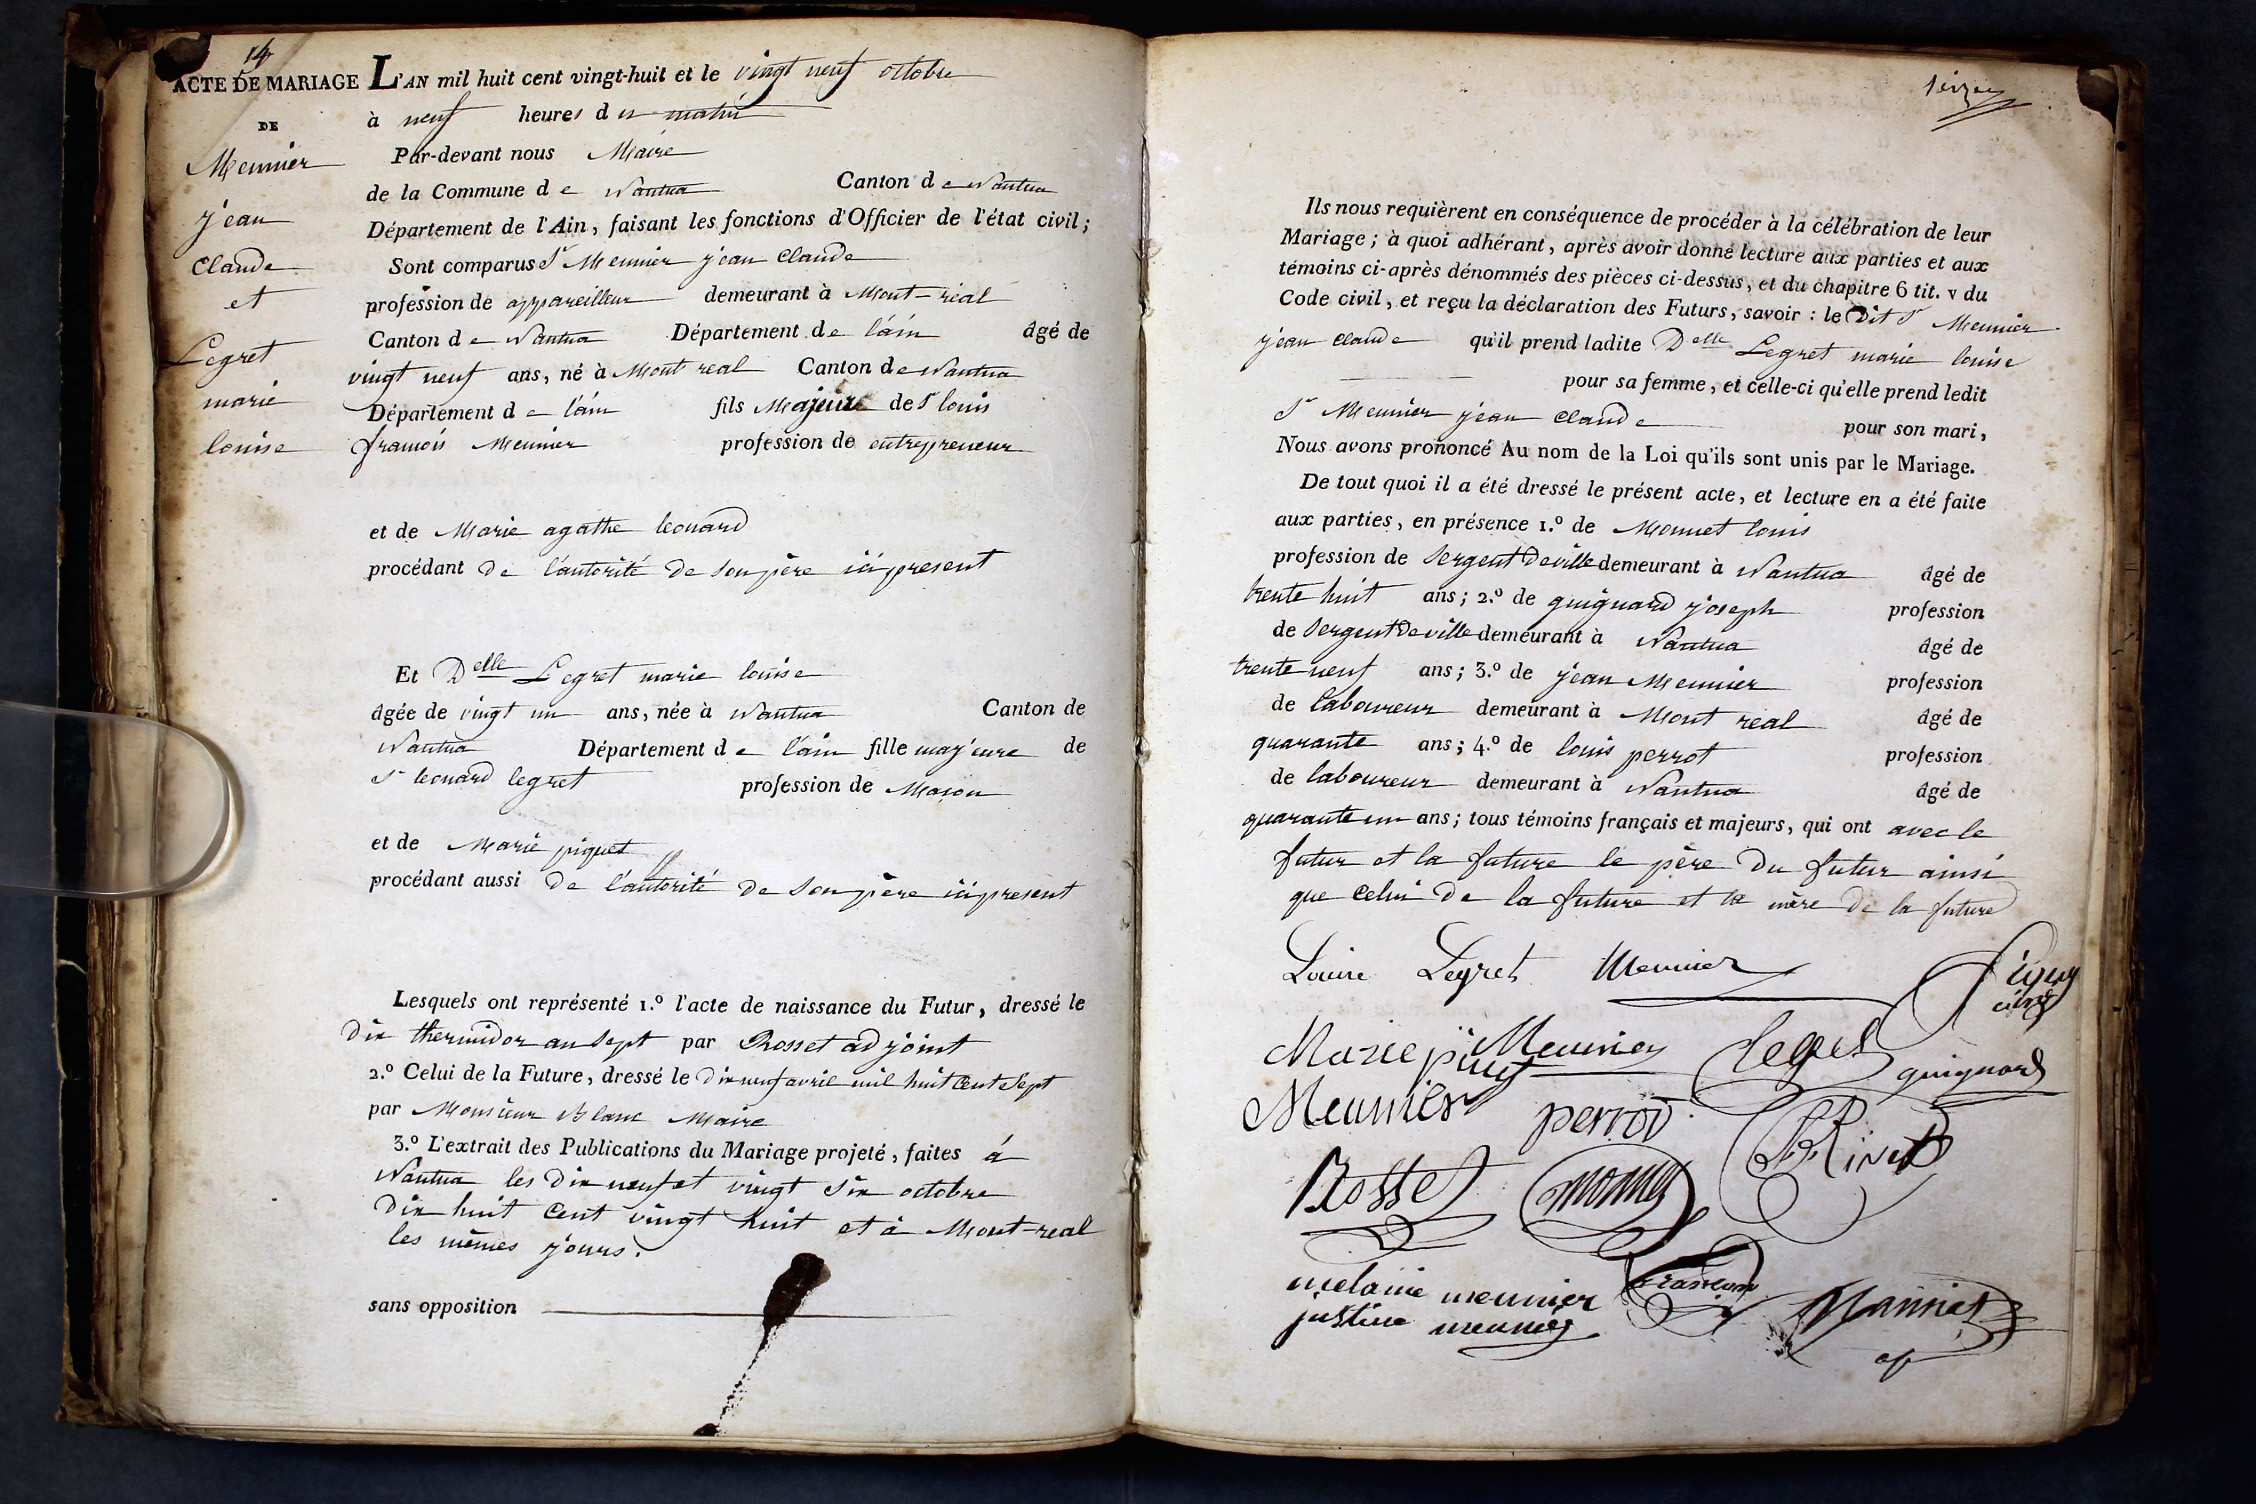 14
ACTE DE MARIAGE L'AN mil huit cent vingt-huit et le vingt neuf octobre
DE
à neuf heures du matin
Meunier
Par-devant nous Maire
de la Commune de Nantua Canton de Nantua
jean
Département de l'Ain, faisant les fonctions d'Officier de l'état civil;
Claude
Sont comparus Sr Meunier jean Claude
et
profession de appareilleur demeurant à Mont-réal
Canton de Nantua Département de l'ain âgé de
Legret
vingt neuf ans, né à Mont real Canton de Nantua
marie
Département de l'ain fils Majeure de Sr louis
louise
francois Meunier profession de entrepreneur
et de Marie agathe leonard
procédant de l'autorité de son père ici present
Et Delle Legret marie louise
âgée de vingt un ans, née à Nantua Canton de
Nantua Département de l'ain fille majeure de
Sr leonard legret profession de Maçon
et de Marie piquet
procédant aussi de l'autorité de son père ici present
Lesquels ont représenté 1.º l'acte de naissance du Futur, dressé le
dix thermidor an sept par Rosset adjoint
2.º Celui de la Future, dressé le dix neuf avril mil huit Cent Sept
par Monsieur Blanc Maire
3.º L'extrait des Publications du Mariage projeté, faites à
Nantua les dix neuf et vingt six octobre
dix huit Cent vingt huit et à Mont-real
les mêmes jours.
sans opposition
Ils nous requièrent en conséquence de procéder à la célébration de leur
Mariage; à quoi adhérant, après avoir donné lecture aux parties et aux
témoins ci-après dénommés des pièces ci-dessus, et du chapitre 6 tit. v du
Code civil, et reçu la déclaration des Futurs, savoir : le Dit Sr Meunier
jean Claude qu'il prend ladite Delle Legret marie louise
pour sa femme, et celle-ci qu'elle prend ledit
Sr Meunier jean Claude pour son mari,
Nous avons prononcé Au nom de la Loi qu'ils sont unis par le Mariage.
De tout quoi il a été dressé le présent acte, et lecture en a été faite
aux parties, en présence 1.º de Monnet louis
profession de Sergent de ville demeurant à Nantua âgé de
trente huit ans; 2.º de guignard joseph profession
de Sergent de ville demeurant à Nantua âgé de
trente neuf ans; 3.º de jean Meunier profession
de laboureur demeurant à Mont real âgé de
quarante ans; 4.º de louis perrot profession
de laboureur demeurant à Nantua âgé de
quarante un ans; tous témoins français et majeurs, qui ont avec le
futur et la future le père du futur ainsi
que Celui de la future et la mère de la future
Louise Legret Meunier
Marie piquet Meunier Legret guignard
Meunier perrot
Rosset monnet
melanie meunier
justine meunier